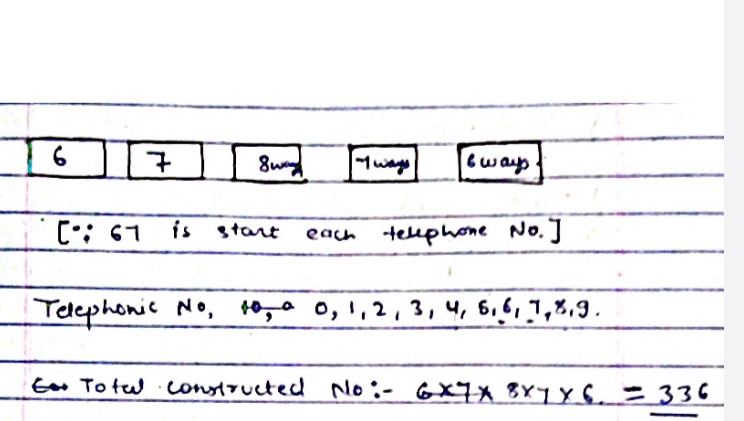 6 7 8 ways 7 ways 6 ways
[∵ 67 is start each telephone No.]
Telephonic No, 0, 1, 2, 3, 4, 5, 6, 7, 8, 9.
Total constructed No:- 6×7× 8×7×6. = 336